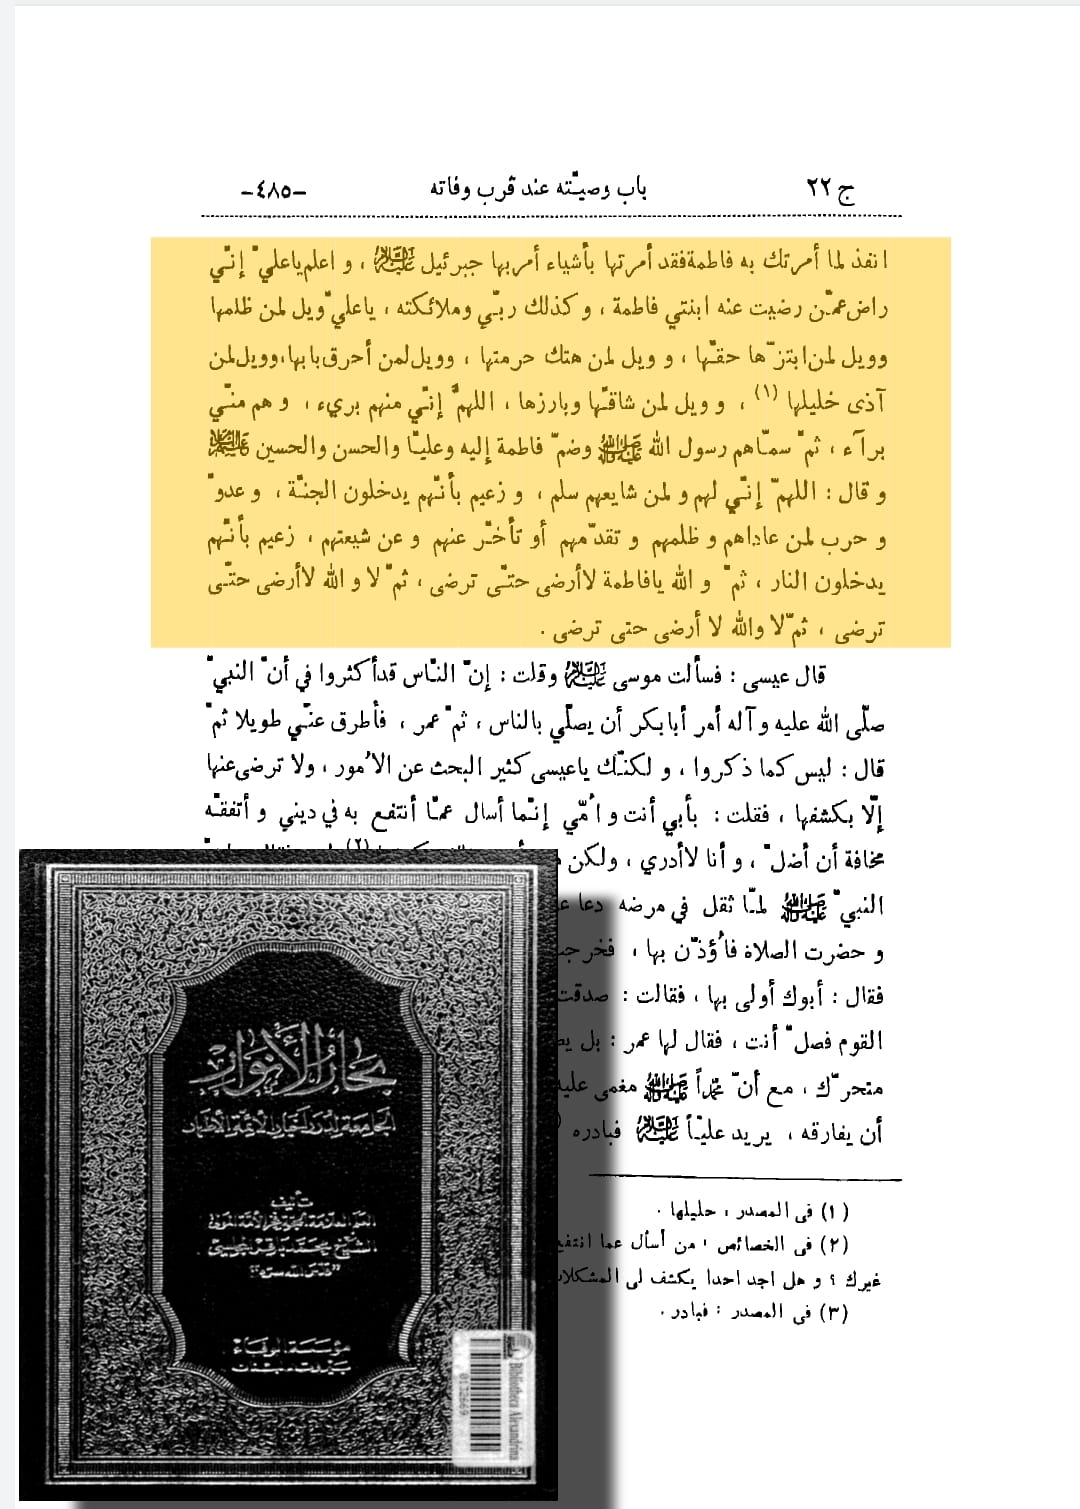 ج ٢٢ باب وصيّته عند قرب وفاته -٤٨٥-
انفذ لما أمرتك به فاطمة فقد أمرتها بأشياء أمر بها جبرئيل عليه السلام ، و اعلم يا علي ّ إنّي
راض عمّن رضيت عنه ابنتي فاطمة ، و كذلك ربّي وملائكته ، يا علي ّ ويل لمن ظلمها
وويل لمن ابتز ّها حقّها ، و ويل لمن هتك حرمتها ، وويل لمن أحرق بابها، وويل لمن
آذى خليلها (١) ، و ويل لمن شاقّها وبارزها ، اللهم ّ إنّي منهم بريء ، و هم منّي
برآء ، ثم ّ سمّاهم رسول الله ﷺ وضم ّ فاطمة إليه وعليّا والحسن والحسين عليهم السلام
و قال : اللهم ّ إنّي لهم و لمن شايعهم سلم ، و زعيم بأنّهم يدخلون الجنّة ، و عدو ّ
و حرب لمن عاداهم و ظلمهم و تقدّمهم أو تأخّر عنهم و عن شيعتهم ، زعيم بأنّهم
يدخلون النار ، ثم ّ و الله يافاطمة لاأرضى حتّى ترضى ، ثم ّ لا و الله لاأرضى حتّى
ترضى ، ثم ّلا والله لا أرضى حتى ترضى .
قال عيسى : فسألت موسى عليه السلام وقلت : إن ّ النّاس قد أكثروا في أن ّ النبي ّ
صلّى الله عليه و آله أمر أبا بكر أن يصلّي بالناس ، ثم ّ عمر ، فأطرق عنّي طويلا ثم ّ
قال : ليس كما ذكروا ، و لكنّك يا عيسى كثير البحث عن الاُمور ، ولا ترضى عنها
إلّا بكشفها ، فقلت : بأبي أنت و اُمّي إنّما أسال عمّا أنتفع به في ديني و أتفقّه
مخافة أن أضل ّ ، و أنا لاأدري ، ولكن
النبي ّ ﷺ لمّا ثقل في مرضه دعا
و حضرت الصلاة فاُؤذّن بها ،
فقال : أبوك أولى بها ، فقالت : صدقت
القوم فصل ّ أنت ، فقال لها عمر : بل
متحر ّك ، مع أن ّ محمّداً ﷺ مغمى عليه
أن يفارقه ، يريد عليّاً عليه السلام فبادره
(١) في المصدر : حليلها .
(٢) في الخصائص : من أسأل عما انتفع
غيرك ؟ و هل اجد احدا يكشف لى المشكلات
(٣) في المصدر : فبادر .
بحار الأنوار
الجامعة لدرر أخبار الأئمة الأطهار
تأليف
العلم العلامة الحجة فخر الأمة المولى
الشيخ محمد باقر المجلسي
"قدس الله سره"
مؤسسة الوفاء
بيروت - لبنان
Bibliotheca Alexandrina